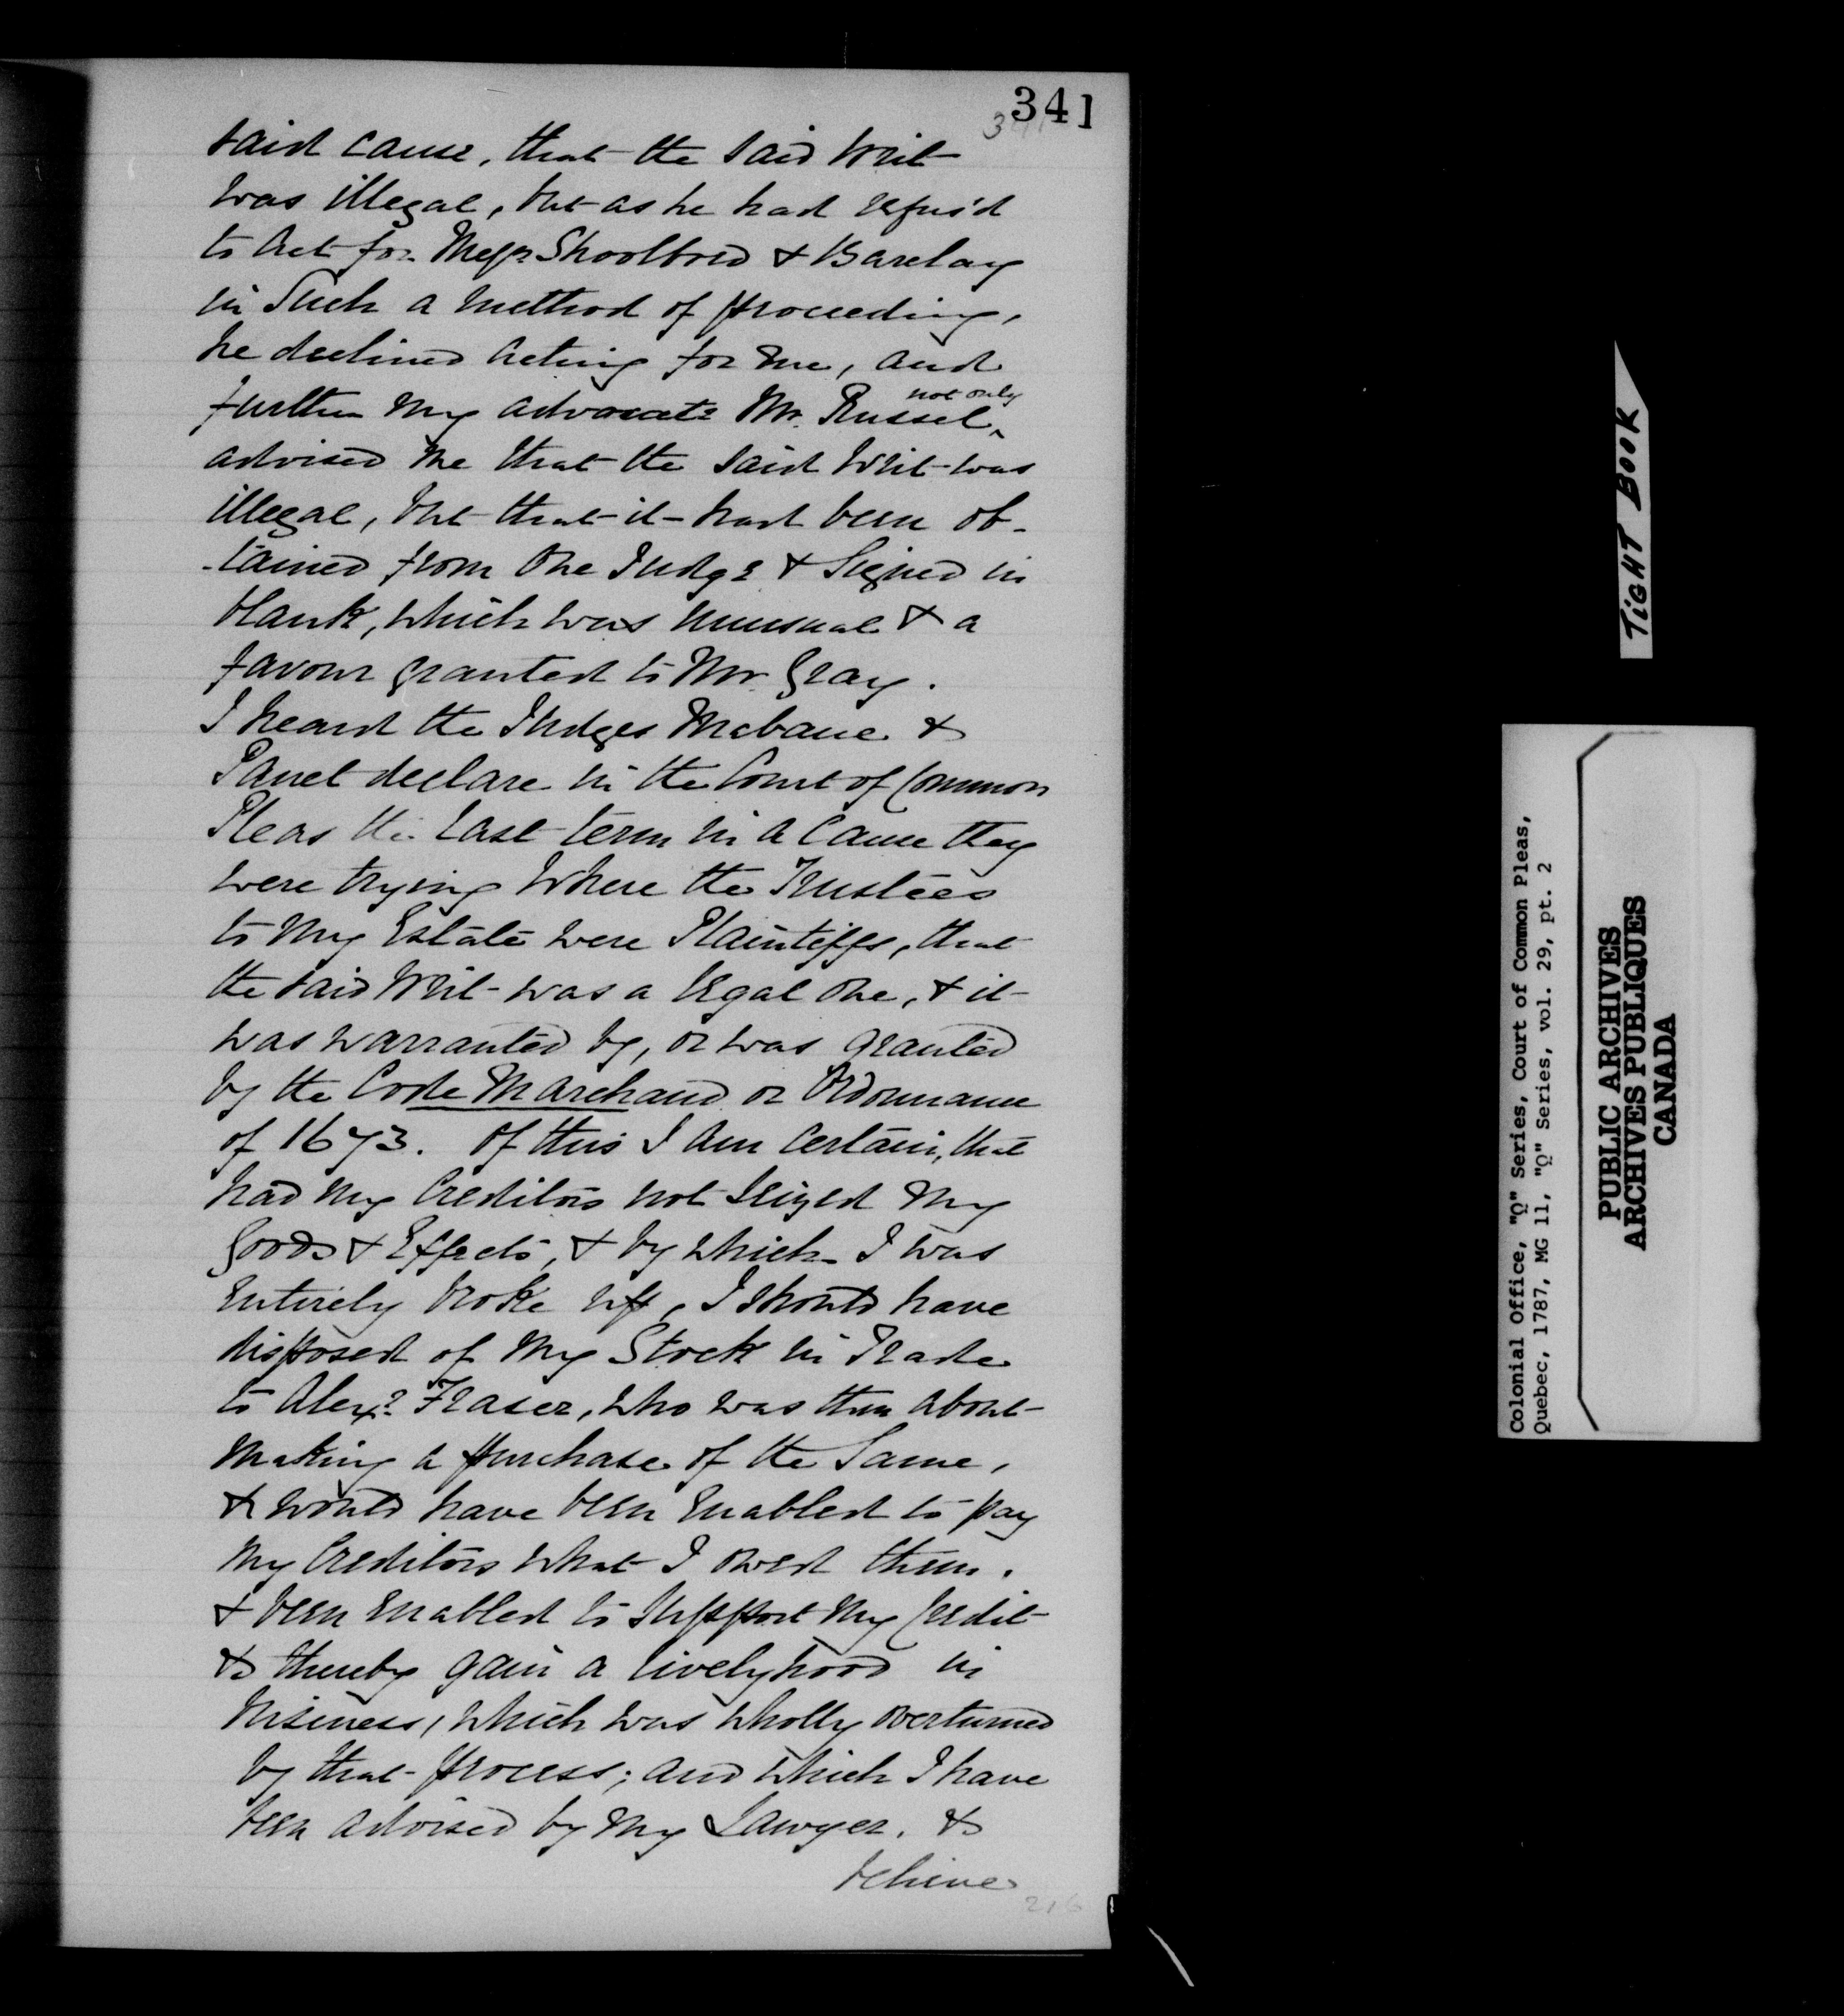 341
341
said cause, that the said Writ
was illegal, but as he had refus'd
to act for Messrs Shoolbred & Barclay
in Such a method of proceeding,
he declined acting for me, and
further my advocate Mr. Russel, not only
advised me that the said Writ was
illegal, but that it had been ob-
-tained from One Judge & Signed in
blank, which was unusual & a
favour granted to Mr Gray.
I heard the Judges Mabane &
Panet declare in the Court of Common
Pleas the last term in a Cause they
were trying Where the Trustees
to my Estate were Plaintiffs, that
the said Writ was a legal One, & it
was warranted by, or was granted
by the Code Marchand or Ordonnance
of 1673. Of this I am certain, that
had my Creditors not Seized my
Goods & Effects, & by which I was
Entirely broke up, I should have
disposed of my Stock in Trade
to Alexr Fraser, who was then about
making a purchase of the Same,
& would have been Enabled to pay
my Creditors what I owed them.
& been Enabled to Support my Credit
& thereby gain a livelyhood in
business, which was wholly overturned
by that process; and which I have
been advised by my Lawyer, &
believe
216
TIGHT BOOK
Colonial Office, "Q" Series, Court of Common Pleas,
Quebec, 1787, MG 11, "Q" Series, vol. 29, pt. 2
PUBLIC ARCHIVES
ARCHIVES PUBLIQUES
CANADA